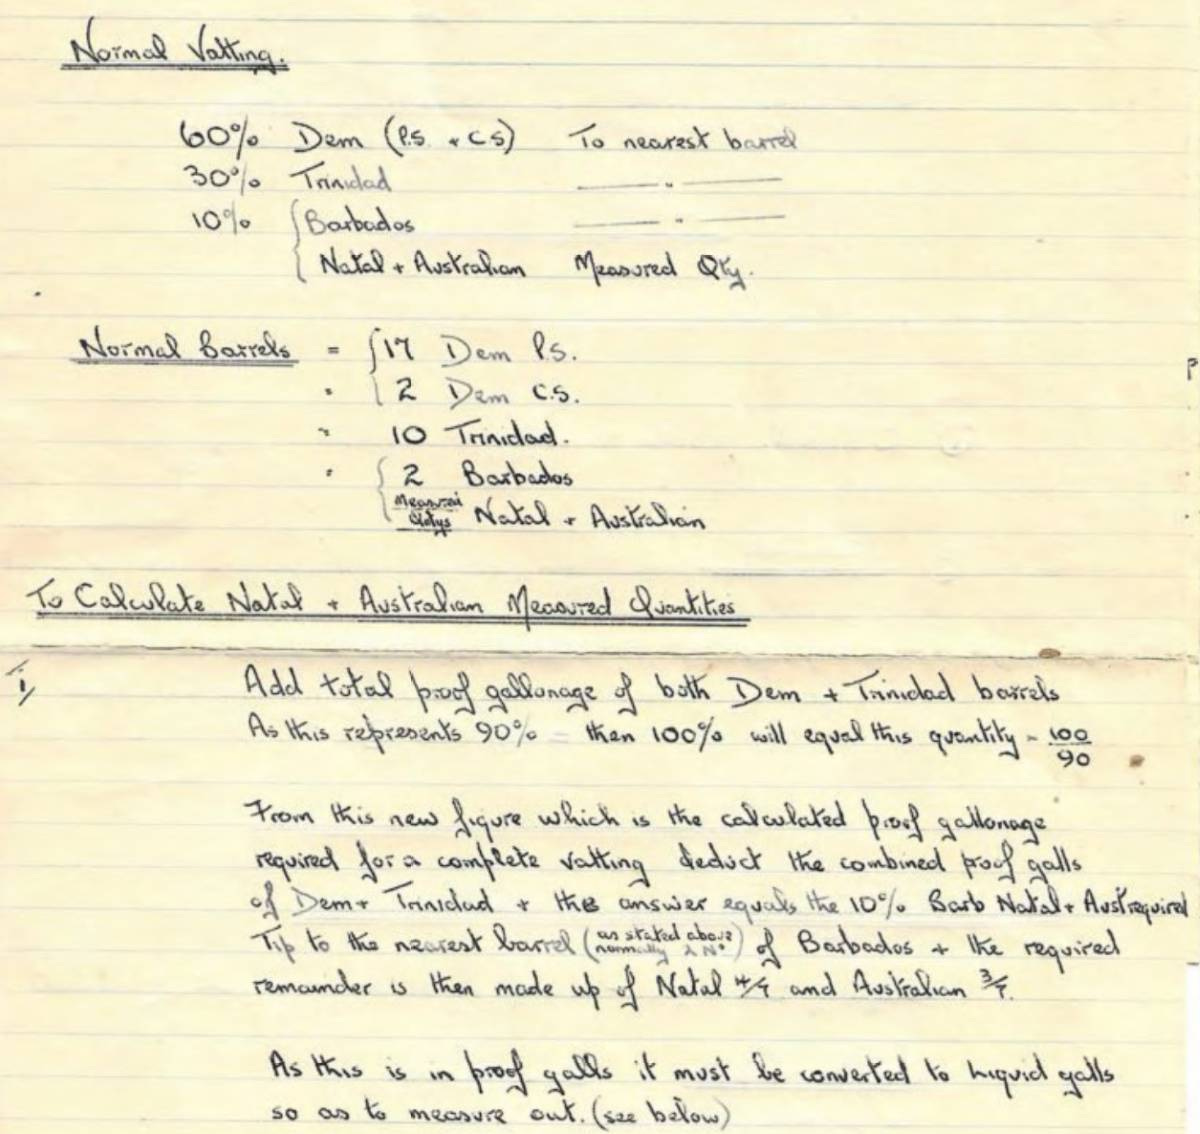 Normal Vatting.
60% Dem (P.S. + C.S) To nearest barrel
30% Trinidad — " —
10% { Barbados — " —
{ Natal + Australian Measured Qty.
Normal Barrels = { 17 Dem P.S.
" { 2 Dem C.S.
" 10 Trinidad.
" { 2 Barbados
{ Measured Qtys Natal + Australian
To Calculate Natal + Australian Measured Quantities
i/ Add total proof gallonage of both Dem + Trinidad barrels
As this represents 90% = then 100% will equal this quantity - 100/90
From this new figure which is the calculated proof gallonage
required for a complete vatting deduct the combined proof galls
of Dem + Trinidad + this answer equals the 10% Barb Natal + Aust required
Tip to the nearest barrel (as stated above normally 2 No) of Barbados + the required
remainder is then made up of Natal 4/7 and Australian 3/7.
As this is in proof galls it must be converted to liquid galls
so as to measure out. (see below)